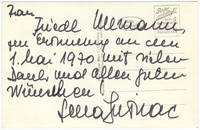 Frau
Friedl Ulemann,
zur Erinnerung an den
1. Mai 1970 mit vielen
Dank und allen guten
Wünschen
Lena